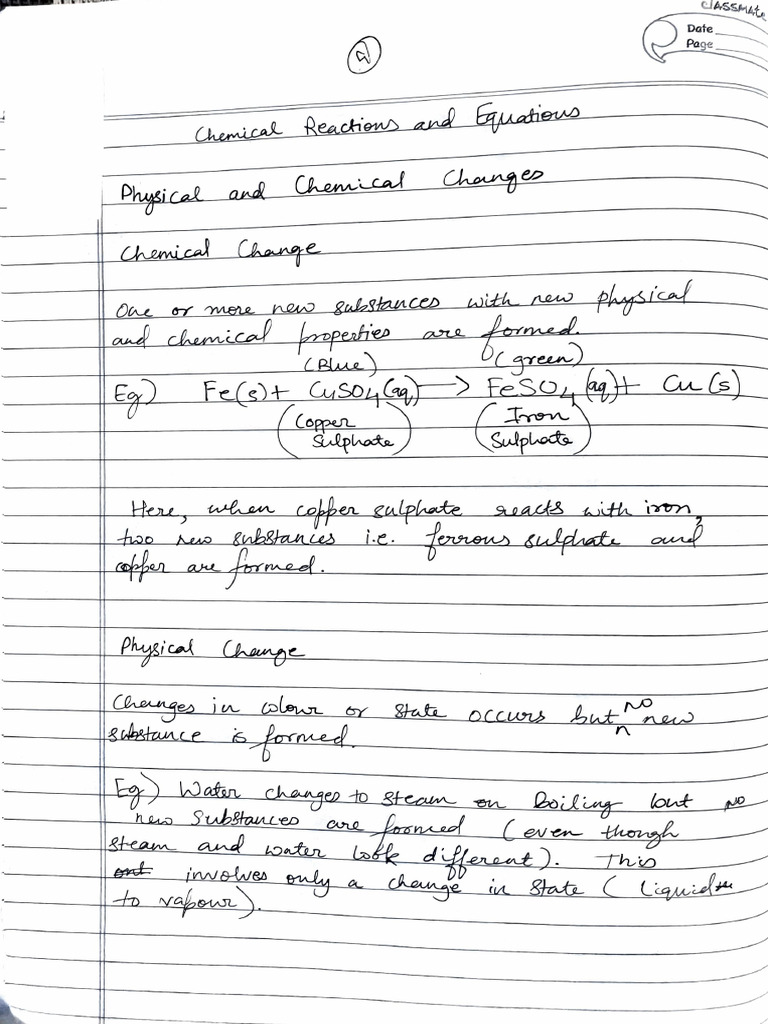 classmate
Date
Page
Chemical Reactions and Equations
Physical and Chemical Changes
Chemical Change
One or more new substances with new physical
and chemical properties are formed.
(Blue) (green)
Eg) Fe(s) + CuSO4(aq) → FeSO4(aq) + Cu(s)
(Copper Sulphate) (Iron Sulphate)
Here, when copper sulphate reacts with iron,
two new substances i.e. ferrous sulphate and
copper are formed.
Physical Change
Changes in colour or state occurs but no new
substance is formed.
Eg) Water changes to steam on boiling but no
new substances are formed (even though
steam and water look different). This
involves only a change in state (liquid
to vapour).